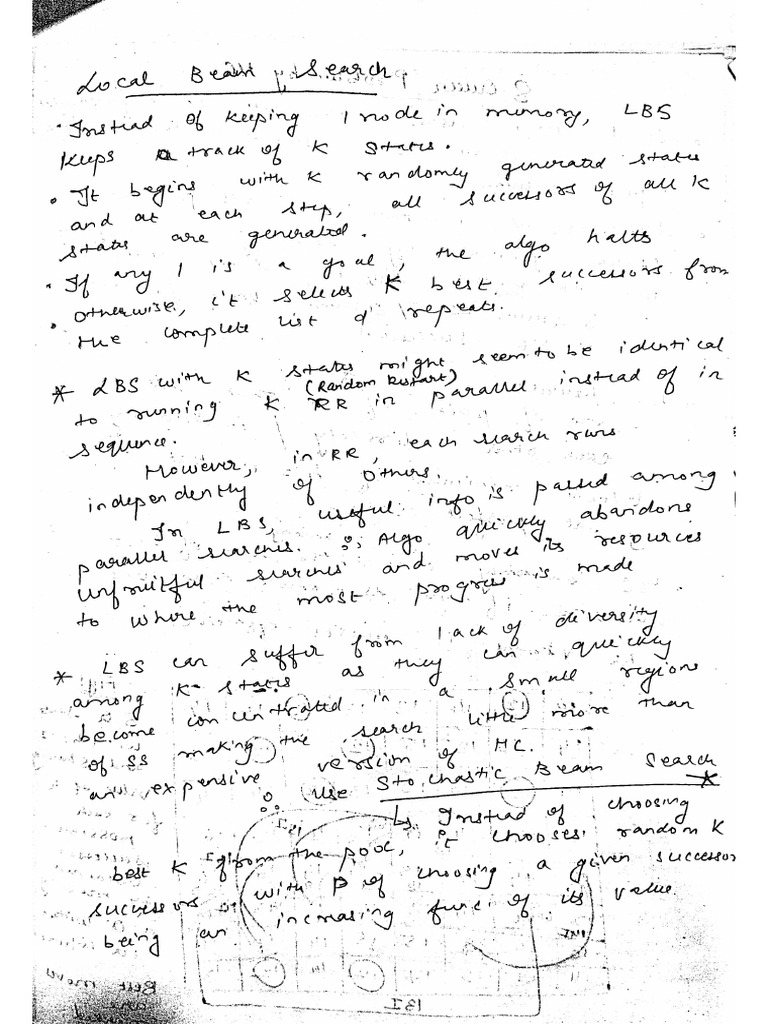 Local Beam Search
• Instead of keeping 1 node in memory, LBS
keeps a track of K states.
• It begins with K randomly generated states
and at each step, all successors of all K
states are generated.
• If any 1 is a goal, the algo halts
• Otherwise, it selects K best successors from
the complete list & repeats.
* LBS with K states might seem to be identical
(Random Restart)
to running K RR in parallel instead of in
sequence.
However, in RR, each search runs
independently of others.
In LBS, useful info is passed among
parallel searches. ∴ Algo quickly abandons
unfruitful searches and moves its resources
to where the most progress is made
* LBS can suffer from lack of diversity
among K states as they can quickly
become concentrated in a small regions
of SS making the search little more than
an expensive version of HC.
∴ Use Stochastic Beam Search *
↳ Instead of choosing
best K from the pool, it chooses random K
successors with P of choosing a given successor
being an increasing func of its value.